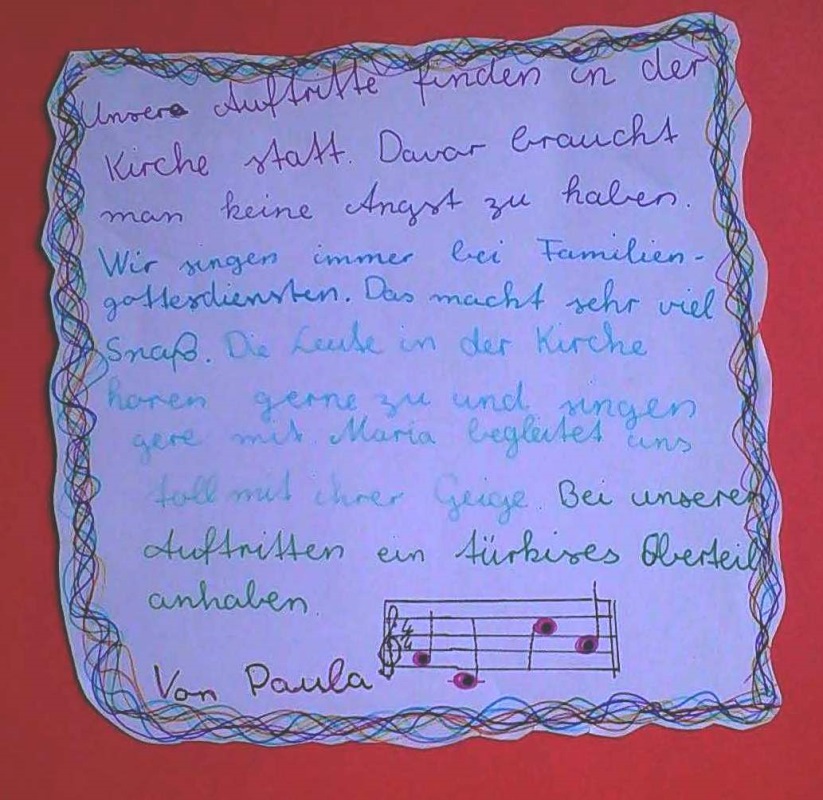 Unsere Auftritte finden in der
Kirche statt. Davor braucht
man keine Angst zu haben.
Wir singen immer bei Familien-
gottesdiensten. Das macht sehr viel
Snaß. Die Leute in der Kirche
hören gerne zu und singen
gere mit. Maria begleitet uns
toll mit ihrer Geige. Bei unseren
Auftritten ein türkises Oberteil
anhaben.
4
4
Von Paula